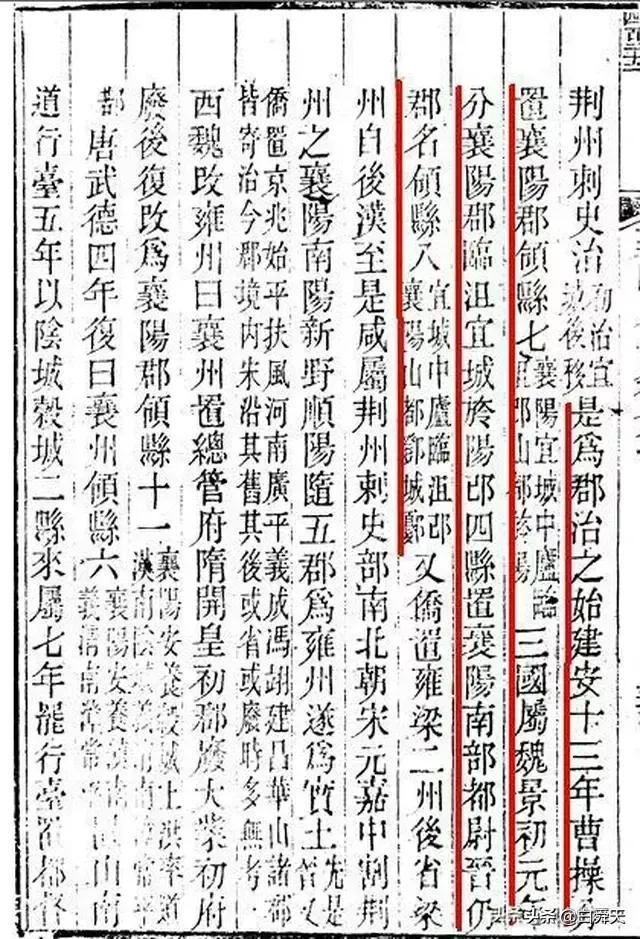 荆州刺史治初治宜城後移是爲郡治之始建安十三年曹操
置襄陽郡領縣七襄陽宜城中廬臨郡山都三國屬魏景初元年
分襄陽郡臨沮宜城於陽邔四縣置襄陽南部都尉晉仍
郡名領縣八宜城中廬臨沮邔襄陽山都鄧城鄾又僑置雍梁二州後省梁
州自後漢至是咸屬荆州刺史部南北朝宋元嘉中割荆
州之襄陽南陽新野順陽隨五郡爲雍州遂爲實土先是晉又
僑置京兆始平扶風河南廣平義成馮翊建昌華山諸郡
皆寄治今郡境內宋沿其舊其後或省或廢時多無考
西魏改雍州曰襄州置總管府隋開皇初郡廢大業初府
廢後復改爲襄陽郡領縣十一襄陽安養穀城上洪率道漢南陰城義清南漳常平
都唐武德四年復曰襄州領縣六襄陽安養漢南義清南漳常平
道行臺五年以陰城穀城二縣來屬七年罷行臺置都督
头条 @白舜天